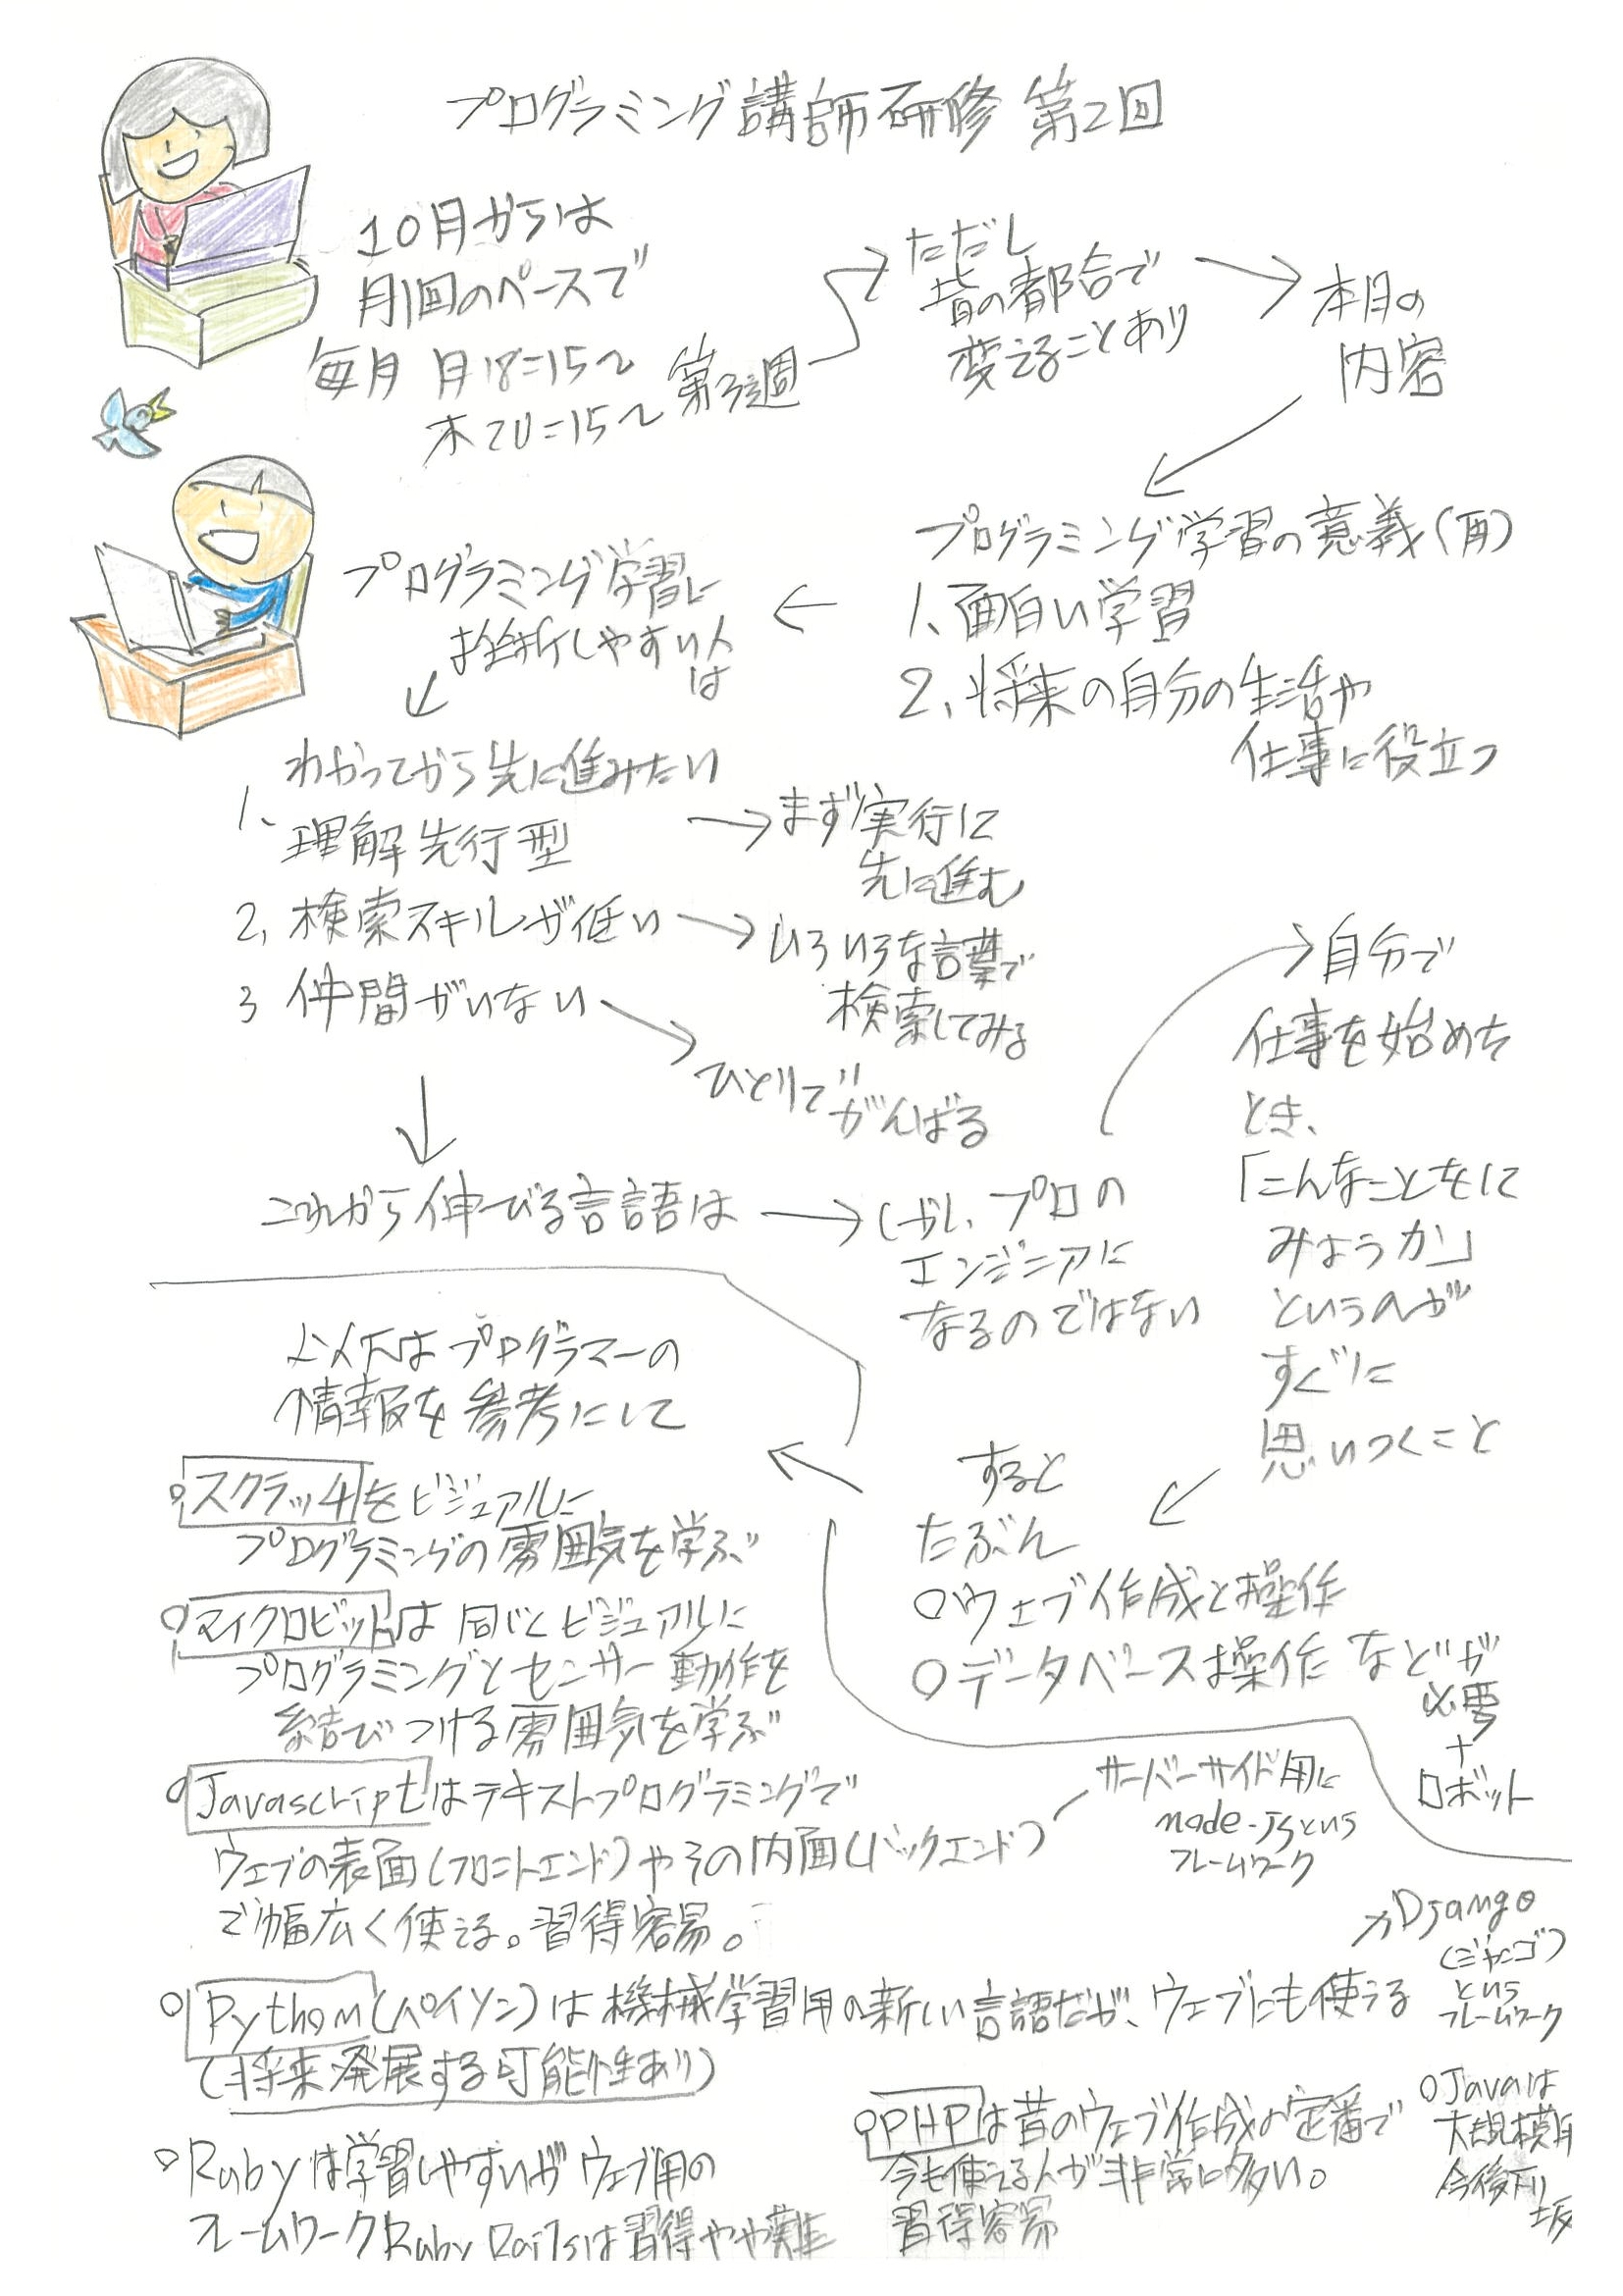 プログラミング講師研修 第2回
10月からは
月1回のペースで
毎月 月18=15〜
木20=15〜
第3週
ただし
皆の都合で
変えることあり
本日の
内容
プログラミング学習の意義(再)
1、面白い学習
2、将来の自分の生活や
仕事に役立つ
プログラミング学習に
挫折しやすい人
は
1、
わかってから先に進みたい
理解先行型
まず実行に
先に進む
2、検索スキルが低い
いろいろな言葉で
検索してみる
3 仲間がいない
ひとりで
がんばる
これから伸びる言語は
しかし、プロの
エンジニアに
なるのではない
自分で
仕事を始めた
とき、
「こんなことをして
みようか」
というのが
すぐに
思いつくこと
すると
たぶん
○ウェブ作成と操作
○データベース操作 などが
必要
+
ロボット
以下はプログラマーの
情報を参考にして
○スクラッチをビジュアルに
プログラミングの雰囲気を学ぶ
○マイクロビットは同じくビジュアルに
プログラミングとセンサー動作を
結びつける雰囲気を学ぶ
○Javascriptはテキストプログラミングで
ウェブの表面(フロントエンド)やその内面(バックエンド)
で幅広く使える。習得容易。
サーバーサイド用に
node-JSという
フレームワーク
○Python(パイソン)は機械学習用の新しい言語だが、ウェブにも使える
(将来発展する可能性あり)
Django
(ジャンゴ)
という
フレームワーク
○Rubyは学習しやすいがウェブ用の
フレームワークRuby Railsは習得やや難
○PHPは昔のウェブ作成の定番で
今も使える人が非常に多い。
習得容易
○Javaは
大規模用
今後下り
坂